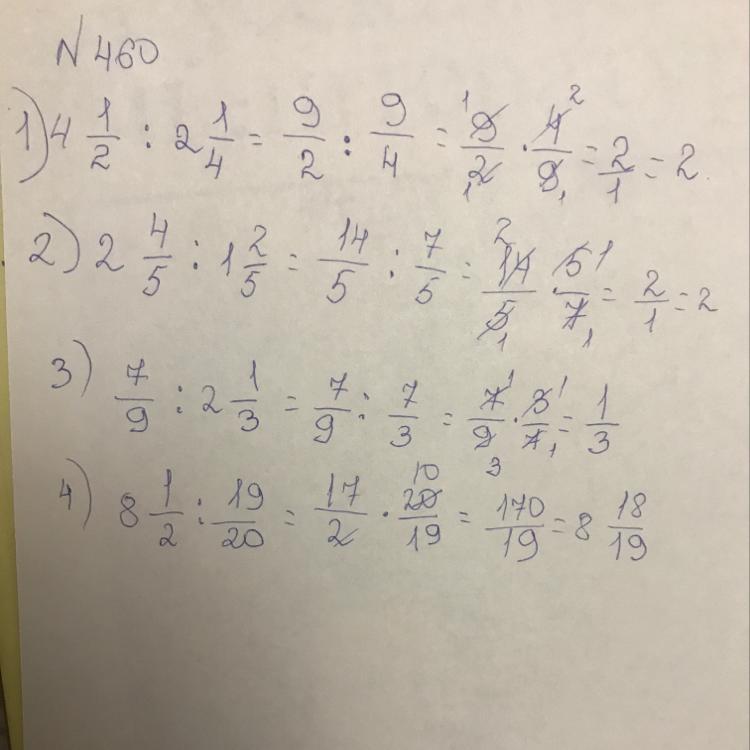 N 460
1) 4 1/2 : 2 1/4 = 9/2 : 9/4 = 9/2 · 4/9 = 2/1 = 2.
2) 2 4/5 : 1 2/5 = 14/5 : 7/5 = 14/5 · 5/7 = 2/1 = 2
3) 7/9 : 2 1/3 = 7/9 : 7/3 = 7/9 · 3/7 = 1/3
4) 8 1/2 : 19/20 = 17/2 · 20/19 = 170/19 = 8 18/19